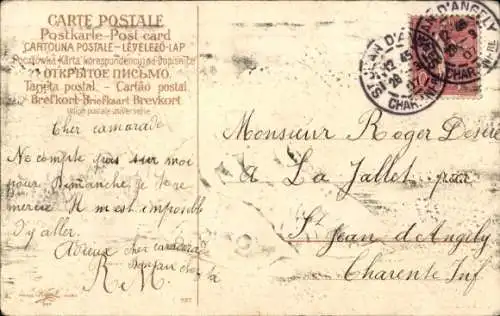 CARTE POSTALE
Postkarte-Post card
CARTOLINA POSTALE-LEVELEZŐ-LAP
Pocztówka-Karta korespondencyjna-Dopisnice
ОТКРЫТОЕ ПИСЬМО.
Tarjeta postal - Cartão postal
Brefkort-Briefkaart Brevkort
Union postale universelle
Cher camarade
Ne compte pas sur moi
pour Dimanche je te
mercie. Il m'est impossible
d'y aller.
Adieux cher camarade
Bonjour chez
R. M.
ST JEAN D'ANGELY
CHAR. INFRE
10
Monsieur Roger Désiré
A La Jallet par
St Jean d'Angely
Charente Inf